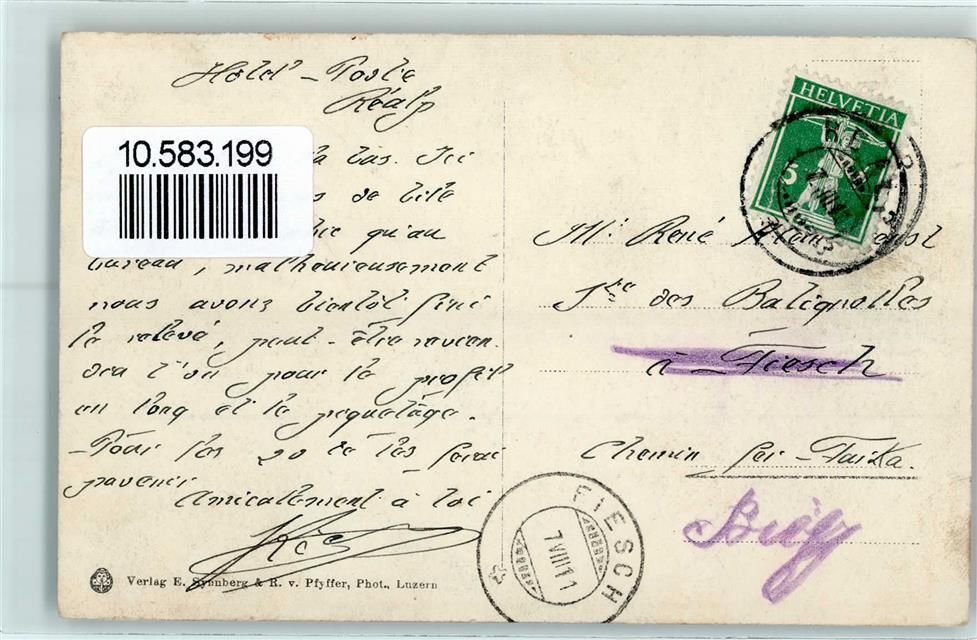 Hôtel - Poste
Réalp
10.583.199
là bas. Ici
de bile
qu'au
bureau, malheureusement
nous avons bientôt fini
le relevé, peut-être revien-
dra t'on pour le profil
en long et le piquetage.
Pour les 20 je les ferai
parvenir
Amicalement à toi
HELVETIA
5
Mr. René
Sté des Batignolles
à Fiesch
Chemin fer - Furka.
Brig
FIESCH
7 VIII 11
Verlag E. Synnberg & R. v. Pfyffer, Phot., Luzern